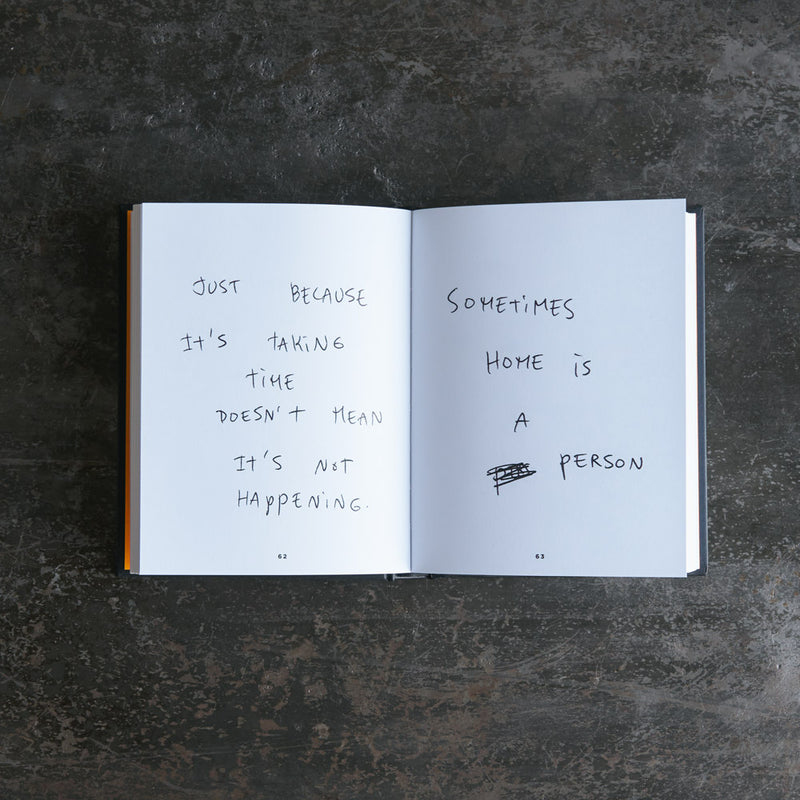 JUST BECAUSE
IT'S TAKING
TIME
DOESN'T MEAN
IT'S NOT
HAPPENING.
62
SOMETIMES
HOME IS
A
PERSON
63